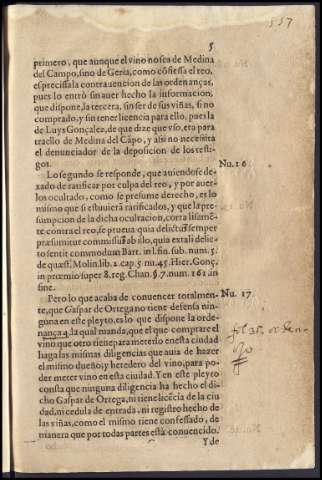 557
5
primero, que aunque el vino no sea de Medina
del Campo, sino de Geria, como cõfiessa el reo,
es precissa la contrauencion de las ordenanças,
pues lo entrò sin auer hecho la informacion,
que dispone, la tercera, sin ser de sus viñas, si no
comprado, y sin tener licencia para ello, pues la
de Luys Gonçalez, de que dize que vso, era para
traello de Medina del Cãpo, y assi no necessita
el denunciador de la deposicion de los testi-
gos.
Nu. 16.
Lo segundo se responde, que auiendose de-
xado de ratificar por culpa del reo, y por auer-
los ocultado, como se presume derecho, es lo
mismo que si estuuierã ratificados, y que la pre-
sumpcion de la dicha ocultacion, corra lisamẽ-
te contra el reo, se prueua, quia delictũ semper
præsumitur commissũ ab illo, quia extali delic-
to sentit commodum Bart. in l. fin. sub. num. 5.
de quæst. Molin. lib. 2. cap. 5. nu. 45. Hier. Gonç.
in prœmio super 8. reg. Chan. §. 7. num. 162 in
fine.
Nu. 17.
Pero lo que acaba de conuencer totalmen-
te, que Gaspar de Ortega no tiene defensa nin-
guna en este pleyto, es lo que dispone la orde-
nança 4. la qual manda, que el que comprare el
vino que otro tiene para meterlo en esta ciudad
haga las mismas diligencias que auia de hazer
el mismo dueño, y heredero del vino, para po-
der meter vino en esta ciudad. Y en este pleyto
consta que ninguna diligencia ha hecho el di-
cho Gaspar de Ortega, ni tiene licẽcia de la ciu
dad, ni cedula de entrada, ni registro hecho de
las viñas, como el mismo tiene confessado, de
manera que por todas partes està conuencido.
Y de
fol 35.